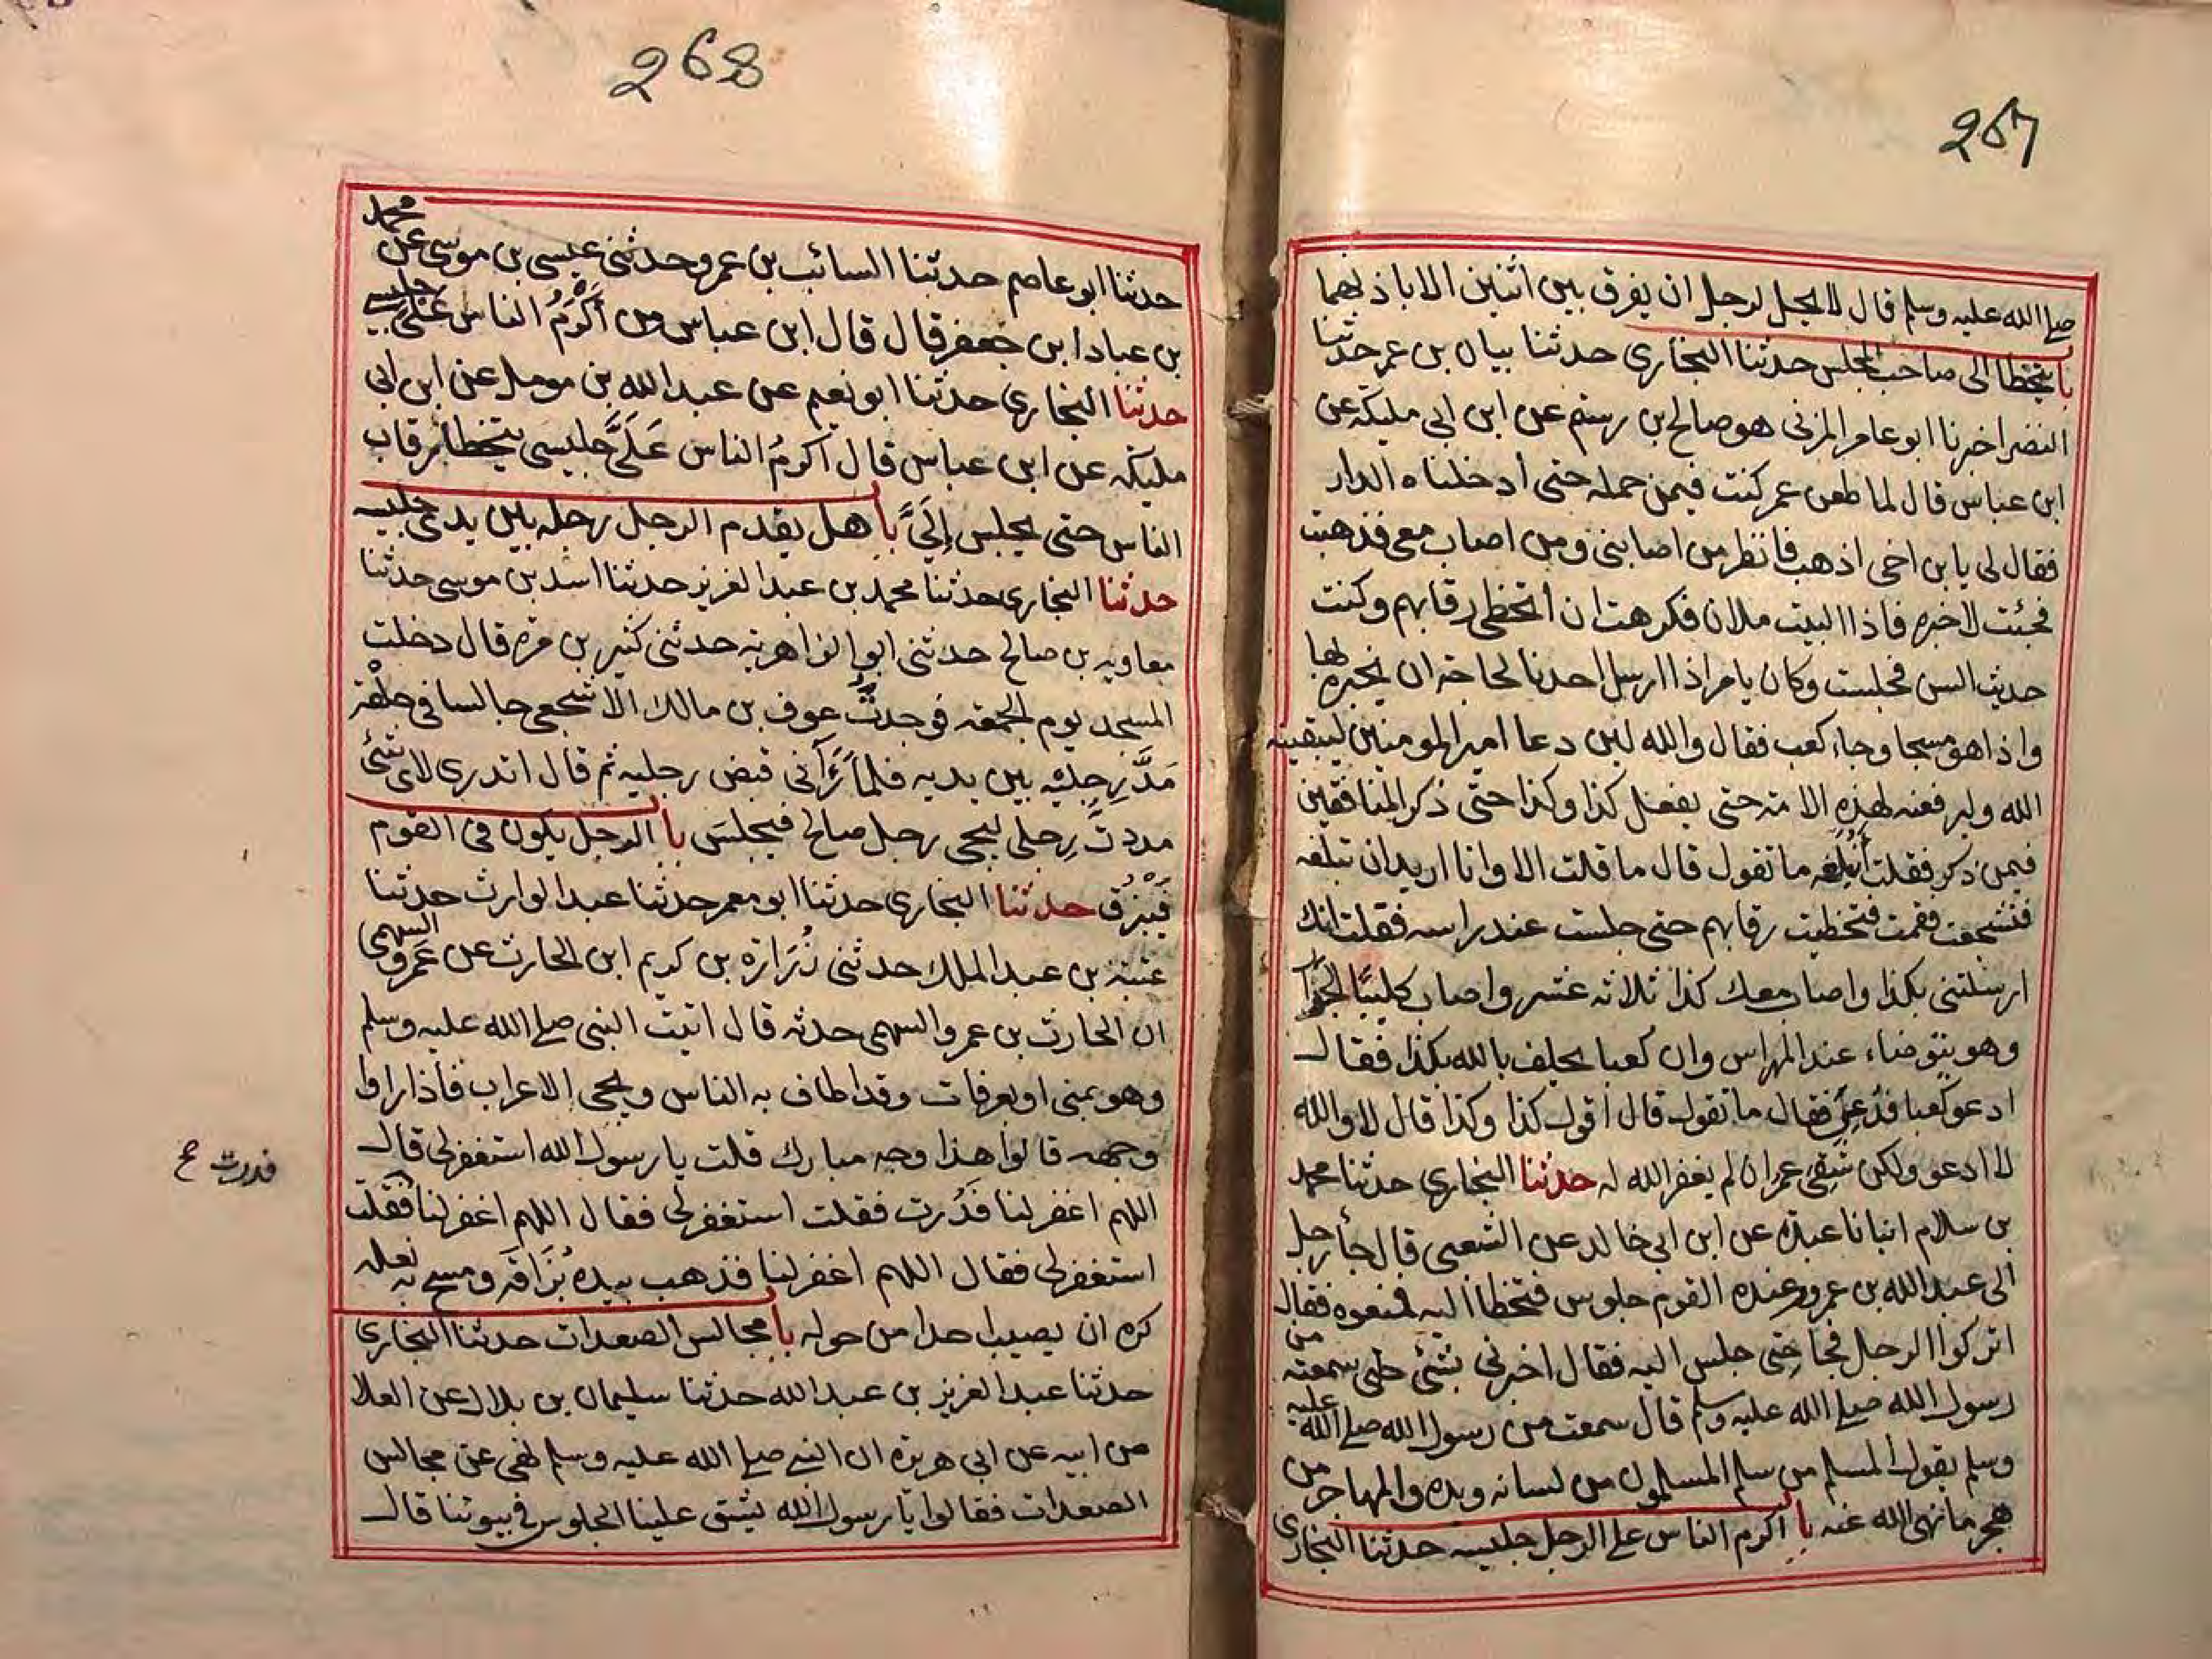 267
صلے الله عليه وسلم قال لا يحل لرجل ان يفرق بين اثنين الا باذنهما
با يتخطا الى صاحب المجلس حدثنا البخاري حدثنا بيان بن عمر حدثنا
النضر اخبرنا ابو عامر المزنى هو صالح بن رستم عن ابن ابى مليكه عن
ابن عباس قال لما طعن عمر كنت فيمن حمله حتى ادخلناه الدار
فقال لى يا بن اخى اذهب فانظر من اصابنى ومن اصاب معى فذهبت
فجئت لاخبره فاذا البيت ملان فكرهت ان اتخطى رقابهم وكنت
حديث السن فجلست وكان يامر اذا ارسل احدنا لحاجة ان يخبره بها
واذا هو مسجا وجاء كعب فقال والله لئن دعا امير المومنين ليبقينه
الله وليرفعنه لهذه الامة حتى يفعل كذا وكذا حتى ذكر المنافقين
فيمن ذكر فقلت أبلغه ما تقول قال ما قلت الا وانا اريد ان تبلغه
فتشجعت فقمت فتخطيت رقابهم حتى جلست عند راسه فقلت انك
ارسلتنى بكذا واصاب معك كذا ثلاثه عشر واصاب كليبًا الجزار
وهو يتوضاء عند المهراس وان كعبا يحلف بالله بكذا فقال
ادعو كعبا فدُعِىَ فقال ما تقول قال اقول كذا وكذا قال لا والله
لا ادعو ولكن شقى عمر ان لم يغفر الله له حدثنا البخاري حدثنا محمد
بن سلام انبانا عبدة عن ابن ابى خالد عن الشعبى قال جأ رجل
الى عبد الله بن عمرو وعنده القوم جلوس فتخطا اليه فمنعوه فقال
اتركوا الرجل فجا حتى جلس اليه فقال اخبرنى بشئ سمعته من
رسول الله صلے الله عليه وسلم قال سمعت من رسول الله صلے الله عليه
وسلم يقول المسلم من سلم المسلمون من لسانه ويده والمهاجر من
هجر ما نهى الله عنه با اكرم الناس على الرجل جليسه حدثنا البخارى
268
حدثنا ابو عاصم حدثنا السائب بن عمر وحدثنى عيسى بن موسى عن محمد
بن عباد ابن جعفر قال قال ابن عباس من أَكْرَمُ الناس عَلَىَّ جليسى
حدثنا البخاري حدثنا ابو نعيم عن عبد الله بن مومل عن ابن ابى
مليكه عن ابن عباس قال اكرمُ الناس عَلَىَّ جليسى يتخطا رقاب
الناس حتى يجلس إِلَىَّ با هل يقدم الرجل رجله بين يدى جليسه
حدثنا البخارى حدثنا محمد بن عبد العزيز حدثنا اسد بن موسى حدثنا
معاويه بن صالح حدثنى ابو الزاهرية حدثنى كثير بن مره قال دخلت
المسجد يوم الجمعه فوجدتُّ عوف بن مالك الاشجعى جالسا فى حلقة
مَدَّ رِجليْه بين يديه فلما رَأنى قبض رجليه ثم قال اتدرى لاى شئ
مددتُ رِجلى ليجى رجل صالح فيجلسَ با الرجل يكون فى القوم
فَيَبْزُق حدثنا البخارى حدثنا ابو معمر حدثنا عبد الوارث حدثنا
عتبة بن عبد الملك حدثنى زُرَارة بن كريم ابن الحارث عن عَمرو السهمى
ان الحارث بن عمرو السهمى حدثه قال اتيت النبى صلے الله عليه وسلم
وهو بمنى او بعرفات وقد اطاف به الناس ويجى الاعراب فاذا راوا
وجهه قالوا هذا وجه مبارك قلت يا رسول الله استغفر لى قال
اللهم اغفر لنا فَدُرت فقلت استغفر لى فقال اللهم اغفر لنا فقلت
استغفر لى فقال اللهم اغفر لنا فذهب بيده بُزَاقه ومسح به نعله
كره ان يصيب احدا من حوله با مجالس الصعدات حدثنا البخارى
حدثنا عبد العزيز بن عبد الله حدثنا سليمان بن بلال عن العلا
من ابيه عن ابى هريره ان النبے صلے الله عليه وسلم نهى عن مجالس
الصعدات فقالوا يا رسول الله يشق علينا الجلوس فى بيوتنا قال
فدرت ع